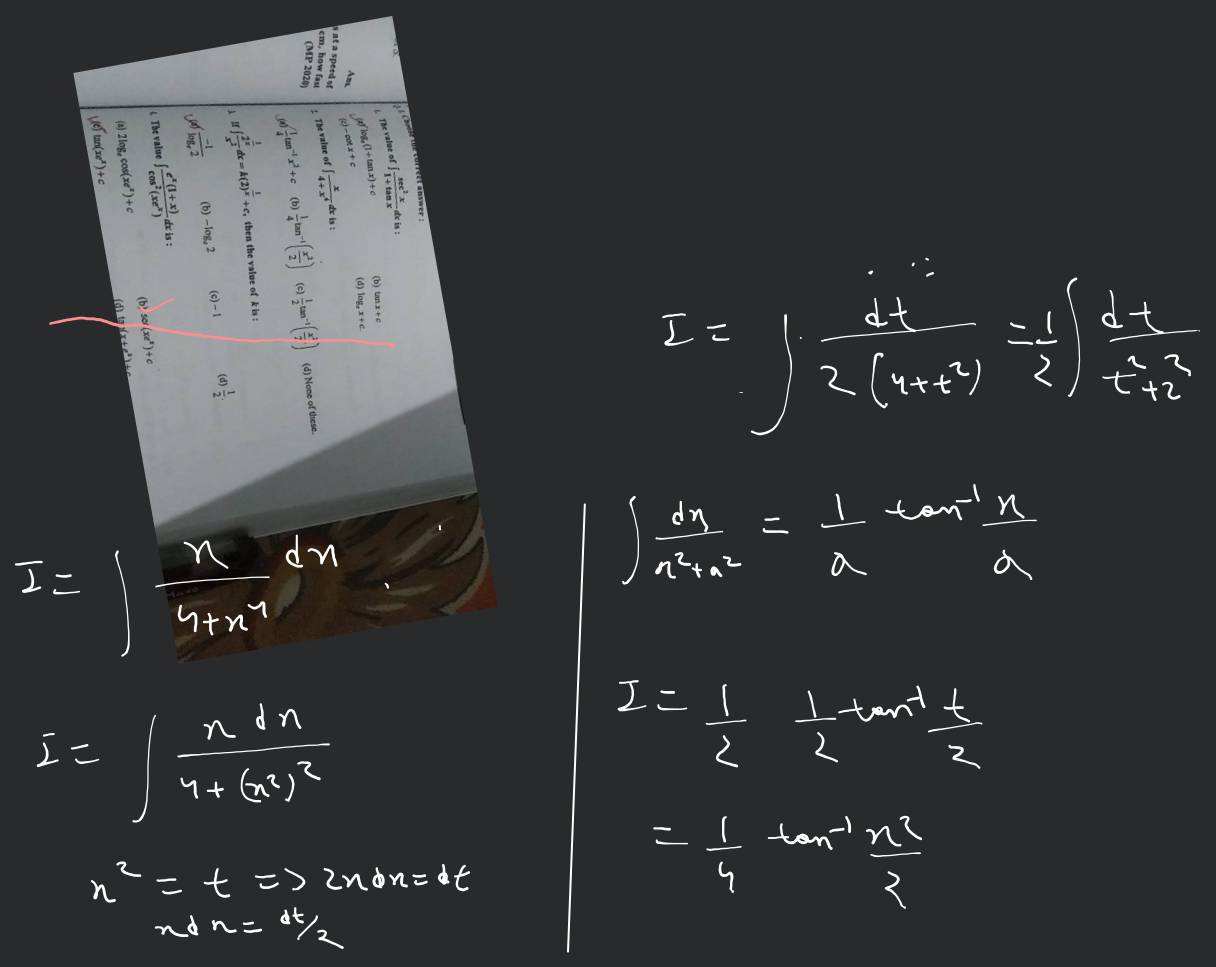 Ans.
s at a speed of
cm, how fast
(MP 2020)
correct answer :
The value of ∫ sec² x / 1 + tan x dx is :
(a) logₑ (1 + tan x) + c (b) tan x + c
(c) – cot x + c (d) logₑ x + c.
2. The value of ∫ x / 4 + x⁴ dx is :
(a) 1/4 tan⁻¹ x² + c (b) 1/4 tan⁻¹ (x²/2) (c) 1/2 tan⁻¹ (x²/2) (d) None of these.
3. If ∫ 2^(1/x) / x² dx = k(2)^(1/x) + c, then the value of k is :
(a) –1 / logₑ 2 (b) – logₑ 2 (c) – 1 (d) 1/2.
The value ∫ eˣ(1 + x) / cos² (xeˣ) dx is :
(a) 2 logₑ cos(xeˣ) + c (b) sec(xeˣ) + c
(c) tan(xeˣ) + c (d) tan(x + eˣ) + c
I = ∫ x / 4+x⁴ dx
I = ∫ x dx / 4 + (x²)²
x² = t => 2x dx = dt
x dx = dt/2
I = ∫ dt / 2(4+t²) = 1/2 ∫ dt / t²+2²
∫ dx / x²+a² = 1/a tan⁻¹ x/a
I = 1/2 1/2 tan⁻¹ t/2
= 1/4 tan⁻¹ x²/2